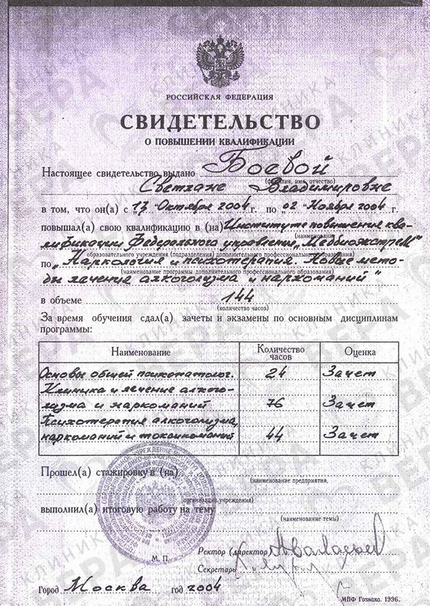 РОССИЙСКАЯ ФЕДЕРАЦИЯ
СВИДЕТЕЛЬСТВО
О ПОВЫШЕНИИ КВАЛИФИКАЦИИ
Настоящее свидетельство выдано Боевой
(фамилия, имя, отчество)
Светлане Владимировне
в том, что он(а) с 17 Октября 2004 г. по 02 Ноября 2004 г.
повышал(а) свою квалификацию в (на) Институте повышения ква-
(наименование)
лификации Федерального управления „Медбиоэкстрем"
образовательного учреждения (подразделения) дополнительного профессионального образования)
по „Наркология и психотерапия. Новые мето-
(наименование программы дополнительного профессионального образования)
ды лечения алкоголизма и наркоманий"
в объеме 144
(количество часов)
За время обучения сдал(а) зачеты и экзамены по основным дисциплинам
программы:
Наименование Количество часов Оценка
Основы общей психопатолог. 24 Зачет
Клиника и лечение алкого-
лизма и наркоманий 76 Зачет
Психотерапия алкоголизма,
наркоманий и токсикоманий 44 Зачет
Прошел(а) стажировку в (на)
(наименование предприятия,
организации, учреждения)
выполнил(а) итоговую работу на тему
(наименование темы)
Ректор (директор)
М. П.
Секретарь
Город Москва год 2004
МПФ Гознака. 1996.
КЛИНИКА
ВЕРА